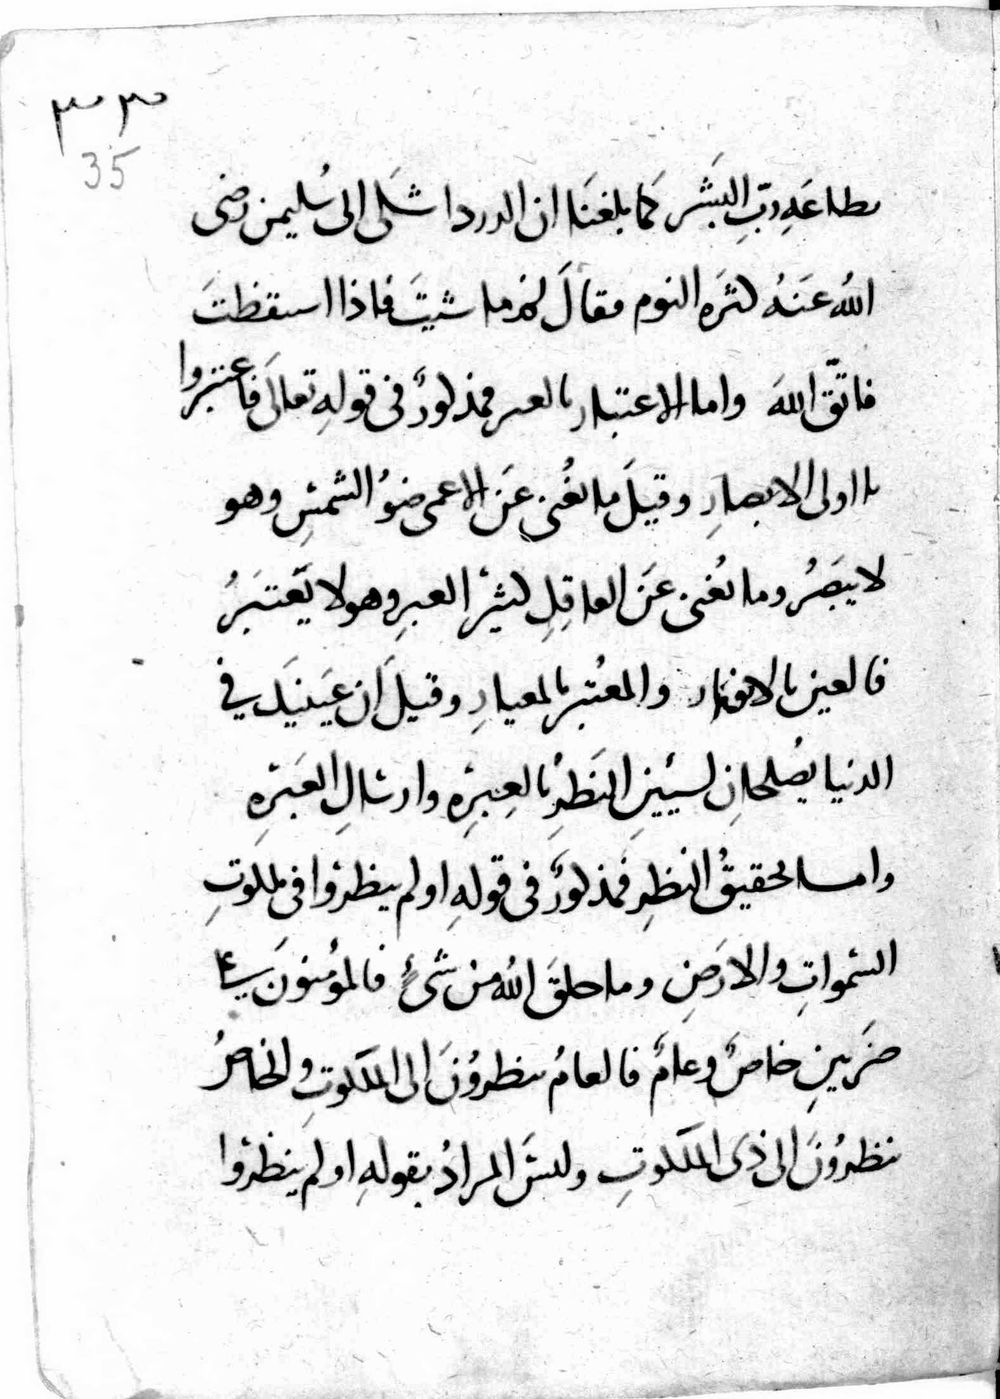 ٣٣
35
بطاعَهِ ربِّ البَشَر كما بلغنَا ان الدردا شكَى الى سُليمن رضى
اللهُ عَنهُ كثرَه النوم فقالَ له نم ما شيتَ فاذا استيقظتَ
فاتّق اللهَ واما الاعتبار بالعبر فمذكورٌ فى قولهِ تعالَى فاعتبروا
يا اولى الابصارِ وقيلَ ما يُغنى عَن الاعمى ضوُ الشمسِ وهو
لا يبَصِرُ وما يُغنى عَن العاقِلِ كثيرُ العبرِ وهو لا يَعتَبرُ
فالعين بالانوار والمعُتبر بالمعيارِ وقيلَ ان عَينيَك في
الدنيا يصُلحانِ لشيئينِ النَظرِ بالعِبرِهِ وارسَالِ العَبرَهِ
واما تحقيقُ النظرِ فمذكورٌ فى قولهِ اولم ينظروا فى ملكوتِ
السَمواتِ والارَضِ وما خلقَ اللهُ من شىءٍ فالمؤمنونَ على
ضرَبينِ خاصٌ وعامٌ فالعامُ ينظروُنَ الى الملَكوتِ والخاصُ
ينظروُنَ الى ذى الملَكوتِ وليسَ المرادُ بقولهِ اولم ينظروا